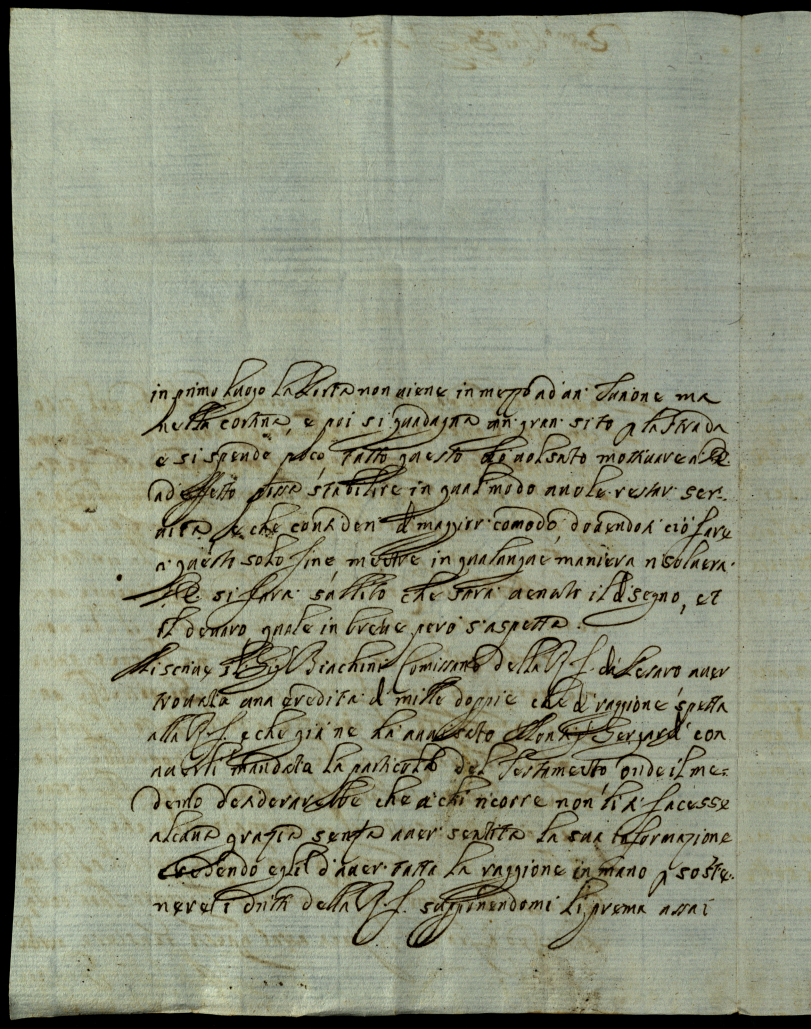 in primo luogo la Porta non viene in mezzo ad un Turione ma
nella cortina, e poi si guadagna un gran sito p la strada
e si spende poco tutto questo ho volsuto motivare a
ad effetto possa stabilire in qual modo vuole restar ser-
vita, e che con di maggior comodo dovendosi ciò fare
a questo solo fine mentre in qualunque maniera risolverà
si farà subbito che sarà venuto il disegno, et
il denaro, quale in breve però s'aspetta.
Mi scrive il Sig Biachini Comissario della R. F. di Pesaro aver
trovata una eredità di mille doppie che di raggione spetta
alla R. F. e che già ne ha avvisato Mons Bergardi con
averli mandata la particola del Testamento onde il me-
demo desiderarebbe che a chi ricorre non li si facesse
alcuna grazia senza aver sentita la sua informazione
credendo egli d'aver tutta la raggione in mano p soste-
nere li dritti della R. F. supponendomi li prema assai